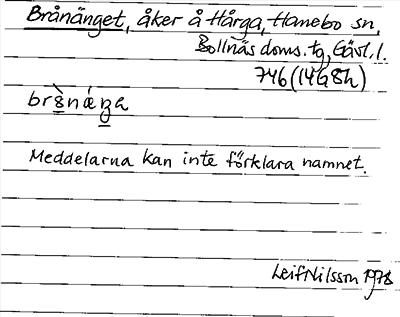 Brånänget, åker å Hårga, Hanebo sn,
Bollnäs doms. tg, Gävl. l.
746 (14G8h)
Meddelarna kan inte förklara namnet.
Leif Nilsson 1978